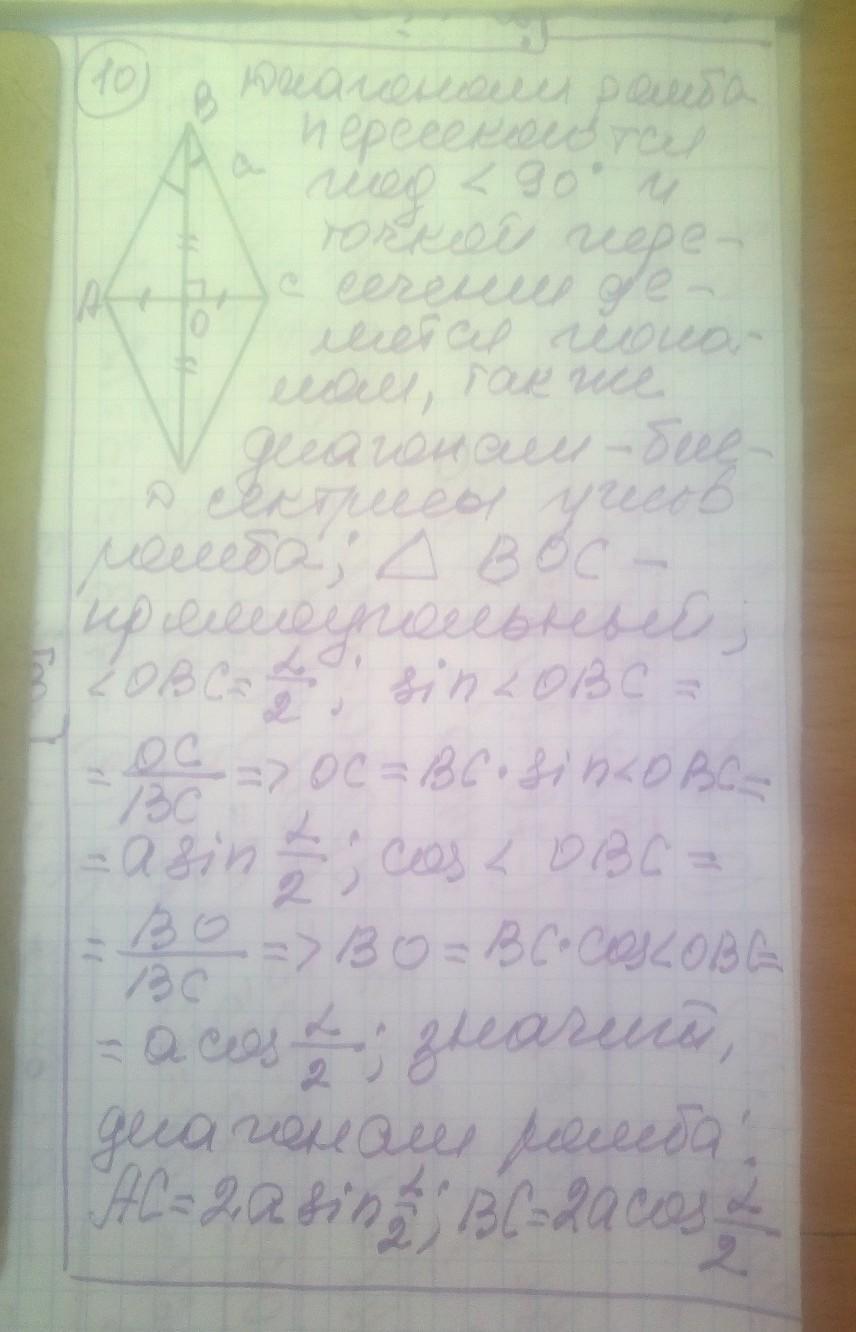 10) Диагонали ромба
B
пересекаются
a
под < 90° и
точкой пере-
A
C
сечения де-
O
лятся попо-
лам, так же
диагонали - бис-
D
сектрисы углов
ромба; △ BOC -
прямоугольный;
< OBC = α/2; sin < OBC =
= OC/BC => OC = BC · sin < OBC =
= a sin α/2; cos < OBC =
= BO/BC => BO = BC · cos < OBC =
= a cos α/2; значит,
диагонали ромба:
AC = 2a sin α/2; BC = 2a cos α/2